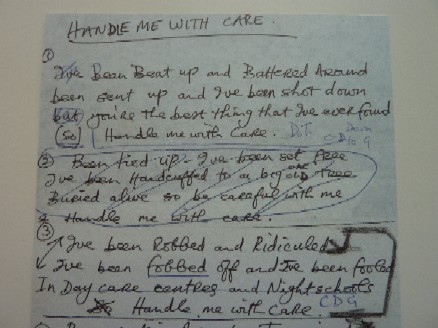 HANDLE ME WITH CARE.
①
I've Been Beat up and Battered Around
been sent up and I've been shot down
but you're the best thing that I've ever found
(so) Handle me with Care. D.T. CD Down to G
② Been tied up - I've been set free
I've been Handcuffed to a big old tree
Buried alive so be careful with me
Handle me with care.
③ I've been Robbed and Ridiculed
I've been fobbed off and I've been fooled
In Day care centres and Night schools
Handle me with care. CDG